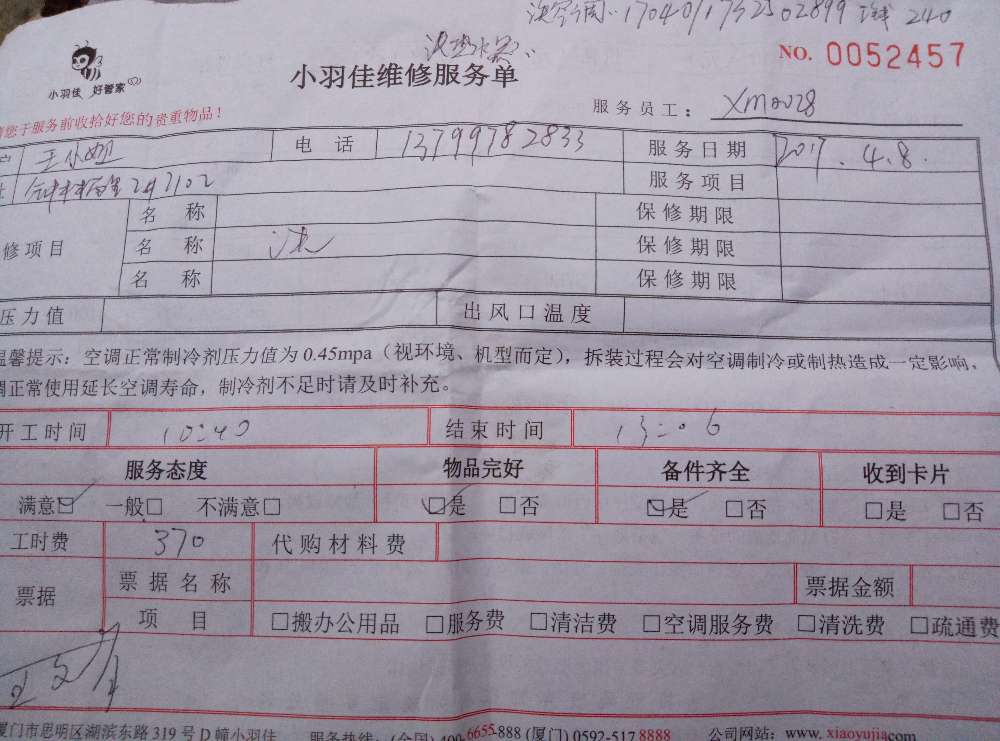 洗空调:17040117352502899 线 240
NO. 0052457
小羽佳 好管家
小羽佳维修服务单
服务员工: XM0028
请您于服务前收拾好您的贵重物品!
电 话 13799782833 服务日期 2017.4.8.
服务项目
名 称 保修期限
修项目 名 称 洗 保修期限
名 称 保修期限
压力值 出风口温度
温馨提示:空调正常制冷剂压力值为 0.45mpa(视环境、机型而定),拆装过程会对空调制冷或制热造成一定影响,
调正常使用延长空调寿命,制冷剂不足时请及时补充。
开工时间 10:40 结束时间 13:06
服务态度 物品完好 备件齐全 收到卡片
满意☑ 一般□ 不满意□ ☑是 □否 ☑是 □否 □是 □否
工时费 370 代购材料费
票据 票据名称 票据金额
项 目 □搬办公用品 □服务费 □清洁费 □空调服务费 □清洗费 □疏通费
厦门市思明区湖滨东路 319 号 D 幢小羽佳 服务热线:(全国) 400-6655-888 (厦门) 0592-517 8888 公司网站:www. xiaoyujia.com